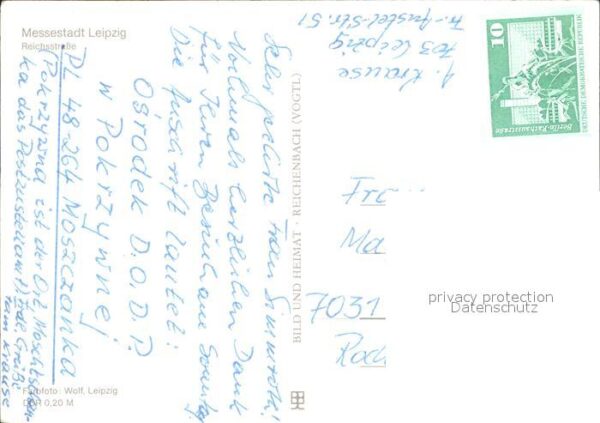 Messestadt Leipzig
Reichsstraße
Sehr geehrte Frau Simmroth!
Vielmals herzlichen Dank
für Ihren Besuch am Sonntag.
Die Anschrift lautet:
Ośrodek D.O.D.P.
w Pokrzywnej
PL 48 264 Moszczanka
(Pokrzywna ist der Ort, Moschtschan-
ka das Postzustellamt) Frdl. Grüße
Krause
Farbfoto: Wolf, Leipzig
DDR 0,20 M
BILD UND HEIMAT · REICHENBACH (VOGTL)
A. Krause
703 Leipzig
Fr.-Austel-Str. 51
10
Berlin-Rathausstraße
DEUTSCHE DEMOKRATISCHE REPUBLIK
Fra
Ma
7031
Roc
privacy protection
Datenschutz